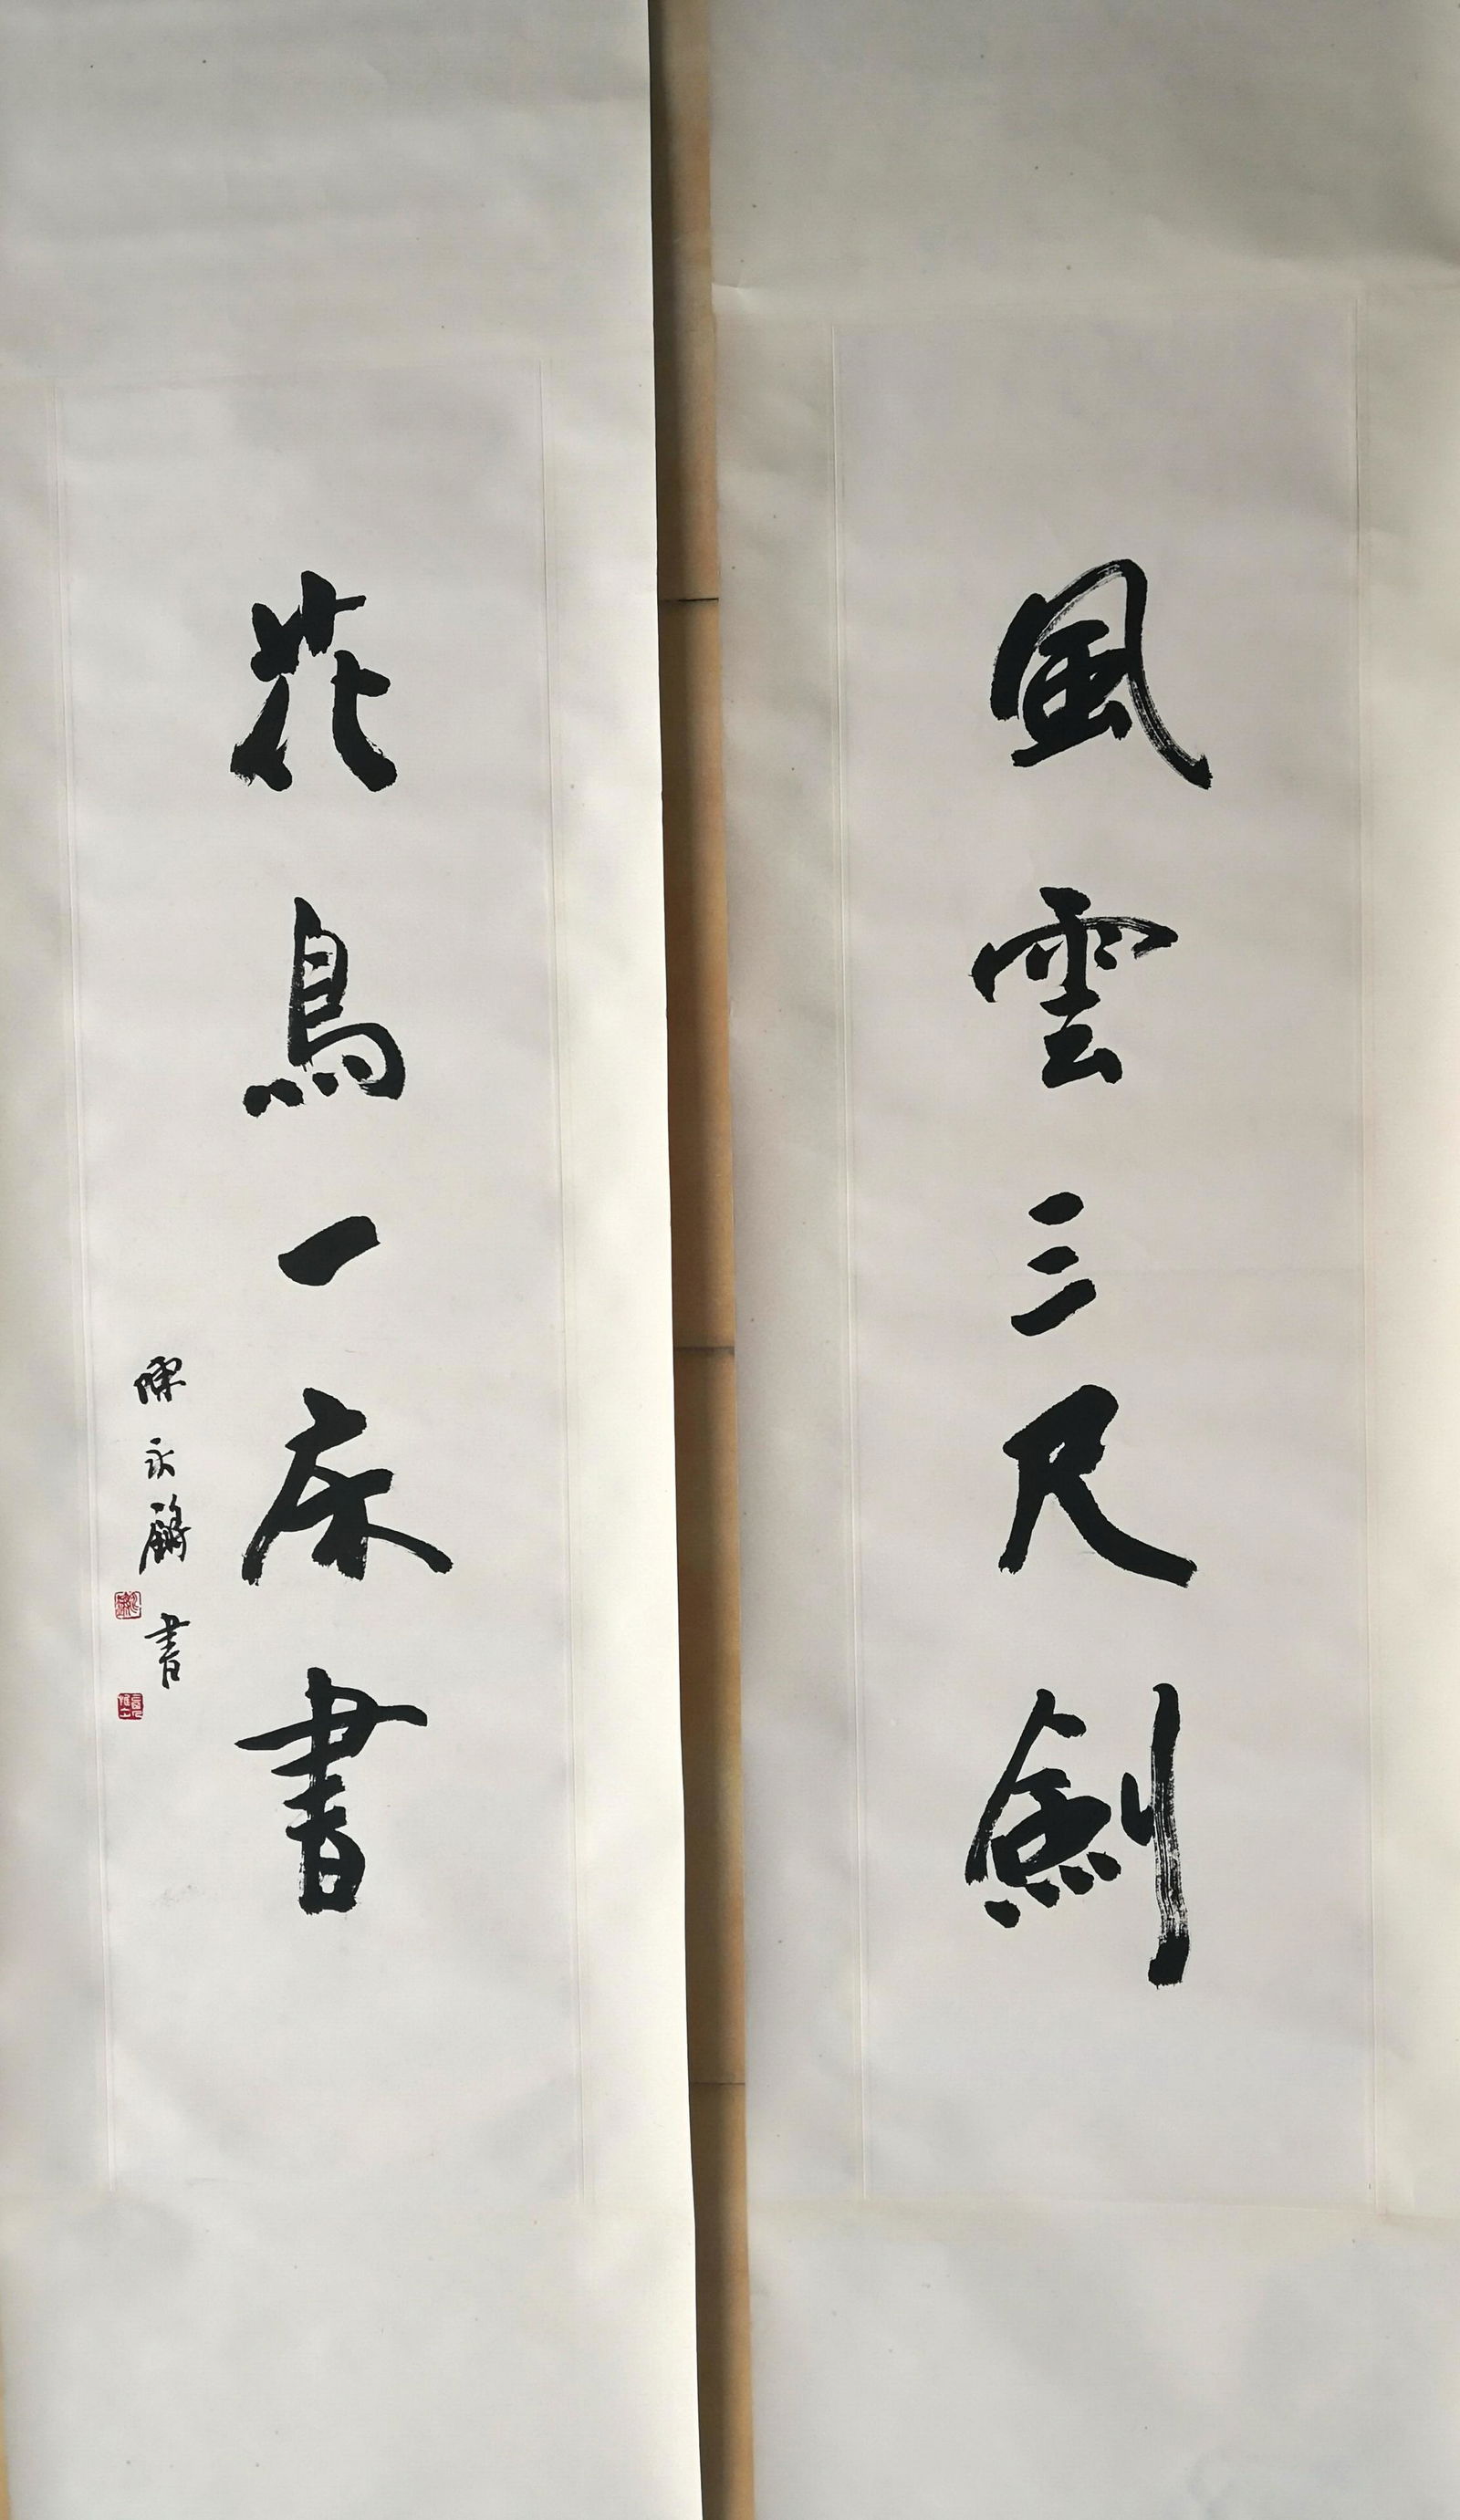 風雲三尺劍
花鳥一床書
陳永鏘書